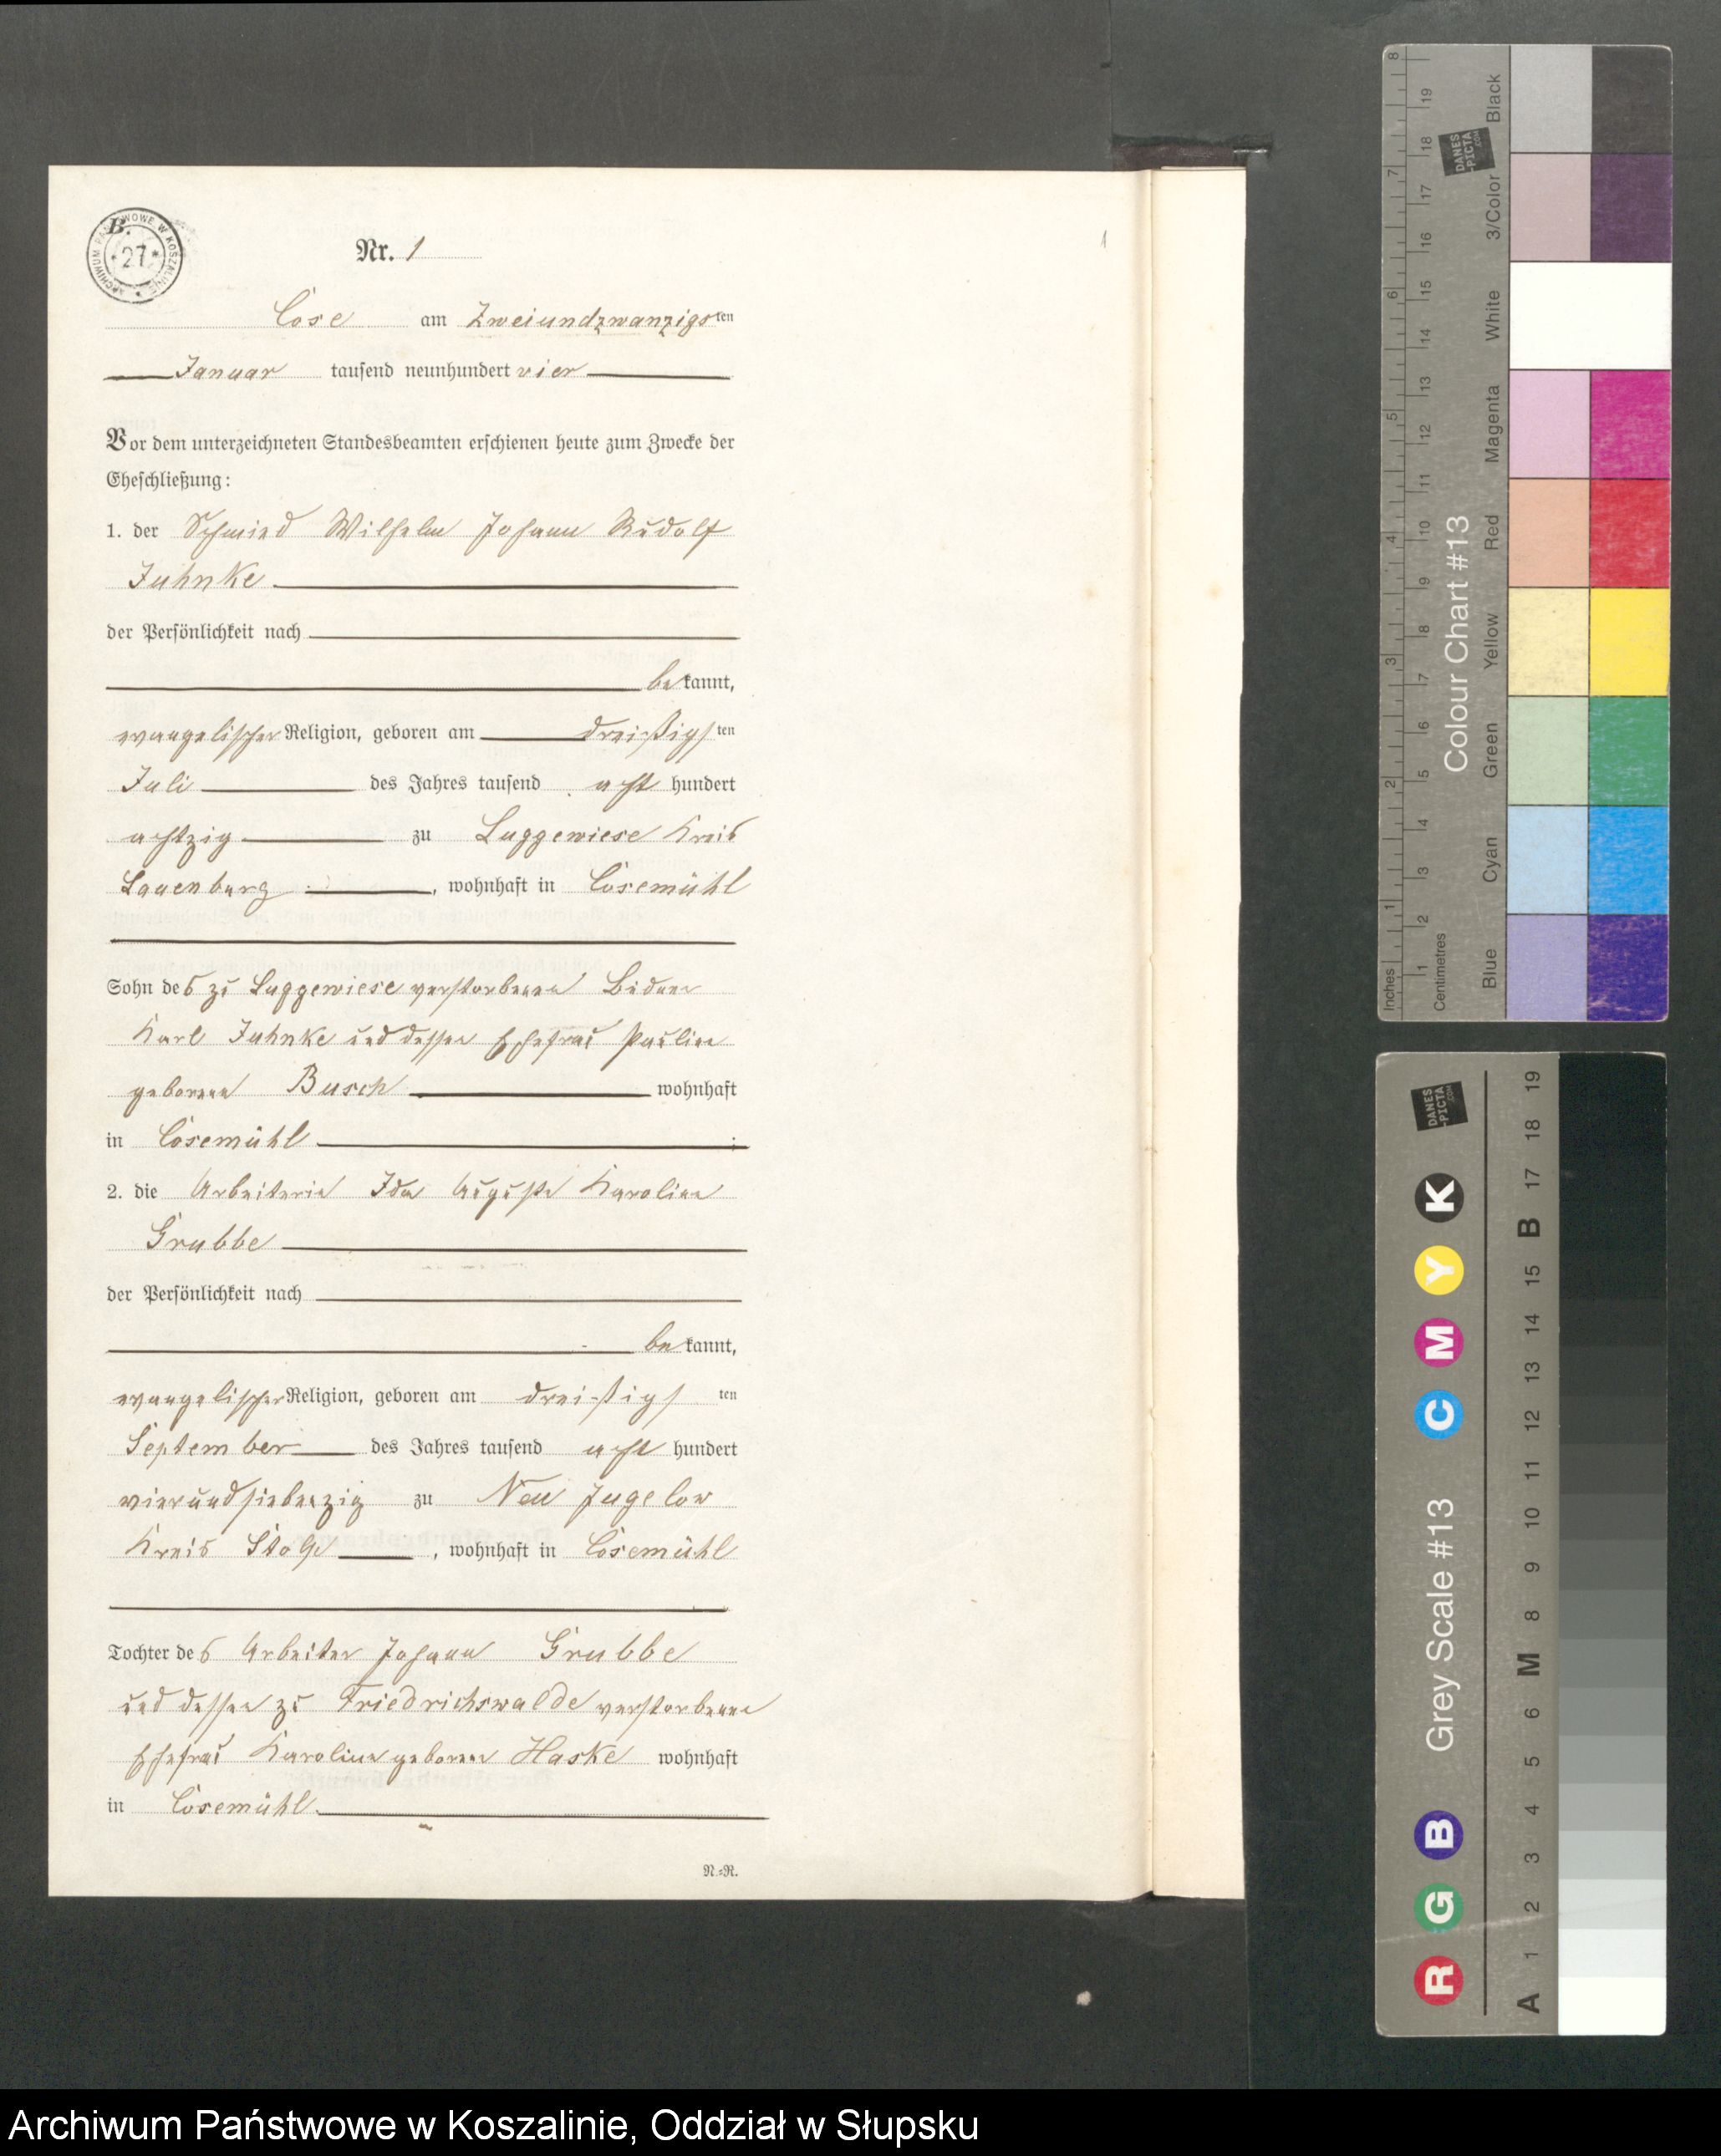 B.
ARCHIWUM PAŃSTWOWE W KOSZALINIE
* 27 *
Nr. 1
1
Cose am Zweiundzwanzigsten
Januar tausend neunhundert vier
Vor dem unterzeichneten Standesbeamten erschienen heute zum Zwecke der
Eheschließung:
1. der Schmied Wilhelm Johann Rudolf
Juhnke
der Persönlichkeit nach
bekannt,
evangelischer Religion, geboren am dreißigsten
Juli des Jahres tausend acht hundert
achtzig zu Luggewiese Kreis
Lauenburg, wohnhaft in Cosemühl
Sohn des zu Luggewiese verstorbenen Büdner
Karl Juhnke und dessen Ehefrau Pauline
geborenen Busch wohnhaft
in Cosemühl;
2. die Arbeiterin Ida Auguste Karoline
Grubbe
der Persönlichkeit nach
bekannt,
evangelischer Religion, geboren am dreißigsten
September des Jahres tausend acht hundert
vierundsiebenzig zu Neu Jugelow
Kreis Stolp, wohnhaft in Cosemühl
Tochter des Arbeiter Johann Grubbe
und dessen zu Friedrichswalde verstorbene
Ehefrau Karoline geborene Haske wohnhaft
in Cosemühl.
N.-R.
Inches 1 2 3 4 5 6 7 8
Centimetres 1 2 3 4 5 6 7 8 9 10 11 12 13 14 15 16 17 18 19
Colour Chart #13
Blue Cyan Green Yellow Red Magenta White 3/Color Black
DANES
-PICTA
.COM
R G B C M Y K
Grey Scale #13
A 1 2 3 4 5 6 M 8 9 10 11 12 13 14 15 B 17 18 19
DANES
-PICTA
.COM
Archiwum Państwowe w Koszalinie, Oddział w Słupsku